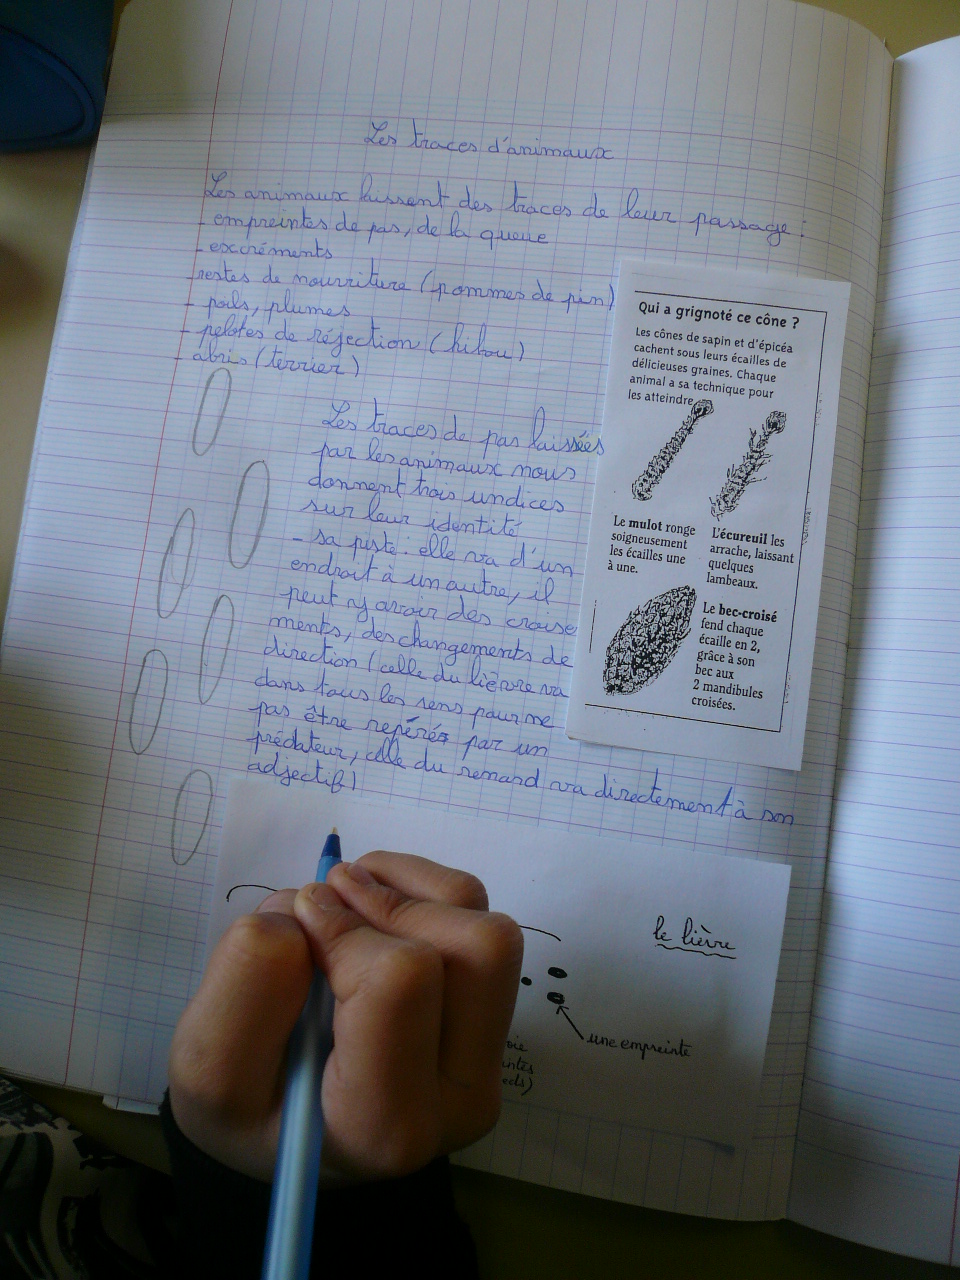 Les traces d'animaux
Les animaux laissent des traces de leur passage :
- empreintes de pas, de la queue
- excréments
- restes de nourriture (pommes de pin)
- poils, plumes
- pelotes de réjection (hibou)
- abris (terrier)
Les traces de pas laissées
par les animaux nous
donnent trois undices
sur leur identité
- sa piste : elle va d'un
endroit à un autre, il
peut y avoir des croise
ments, des changements de
direction (celle du lièvre va
dans tous les sens pour ne
pas être repérés par un
prédateur, celle du renard va directement à son
adjectif)
Qui a grignoté ce cône ?
Les cônes de sapin et d'épicéa
cachent sous leurs écailles de
délicieuses graines. Chaque
animal a sa technique pour
les atteindre.
Le mulot ronge
soigneusement
les écailles une
à une.
L'écureuil les
arrache, laissant
quelques
lambeaux.
Le bec-croisé
fend chaque
écaille en 2,
grâce à son
bec aux
2 mandibules
croisées.
le lièvre
une empreinte